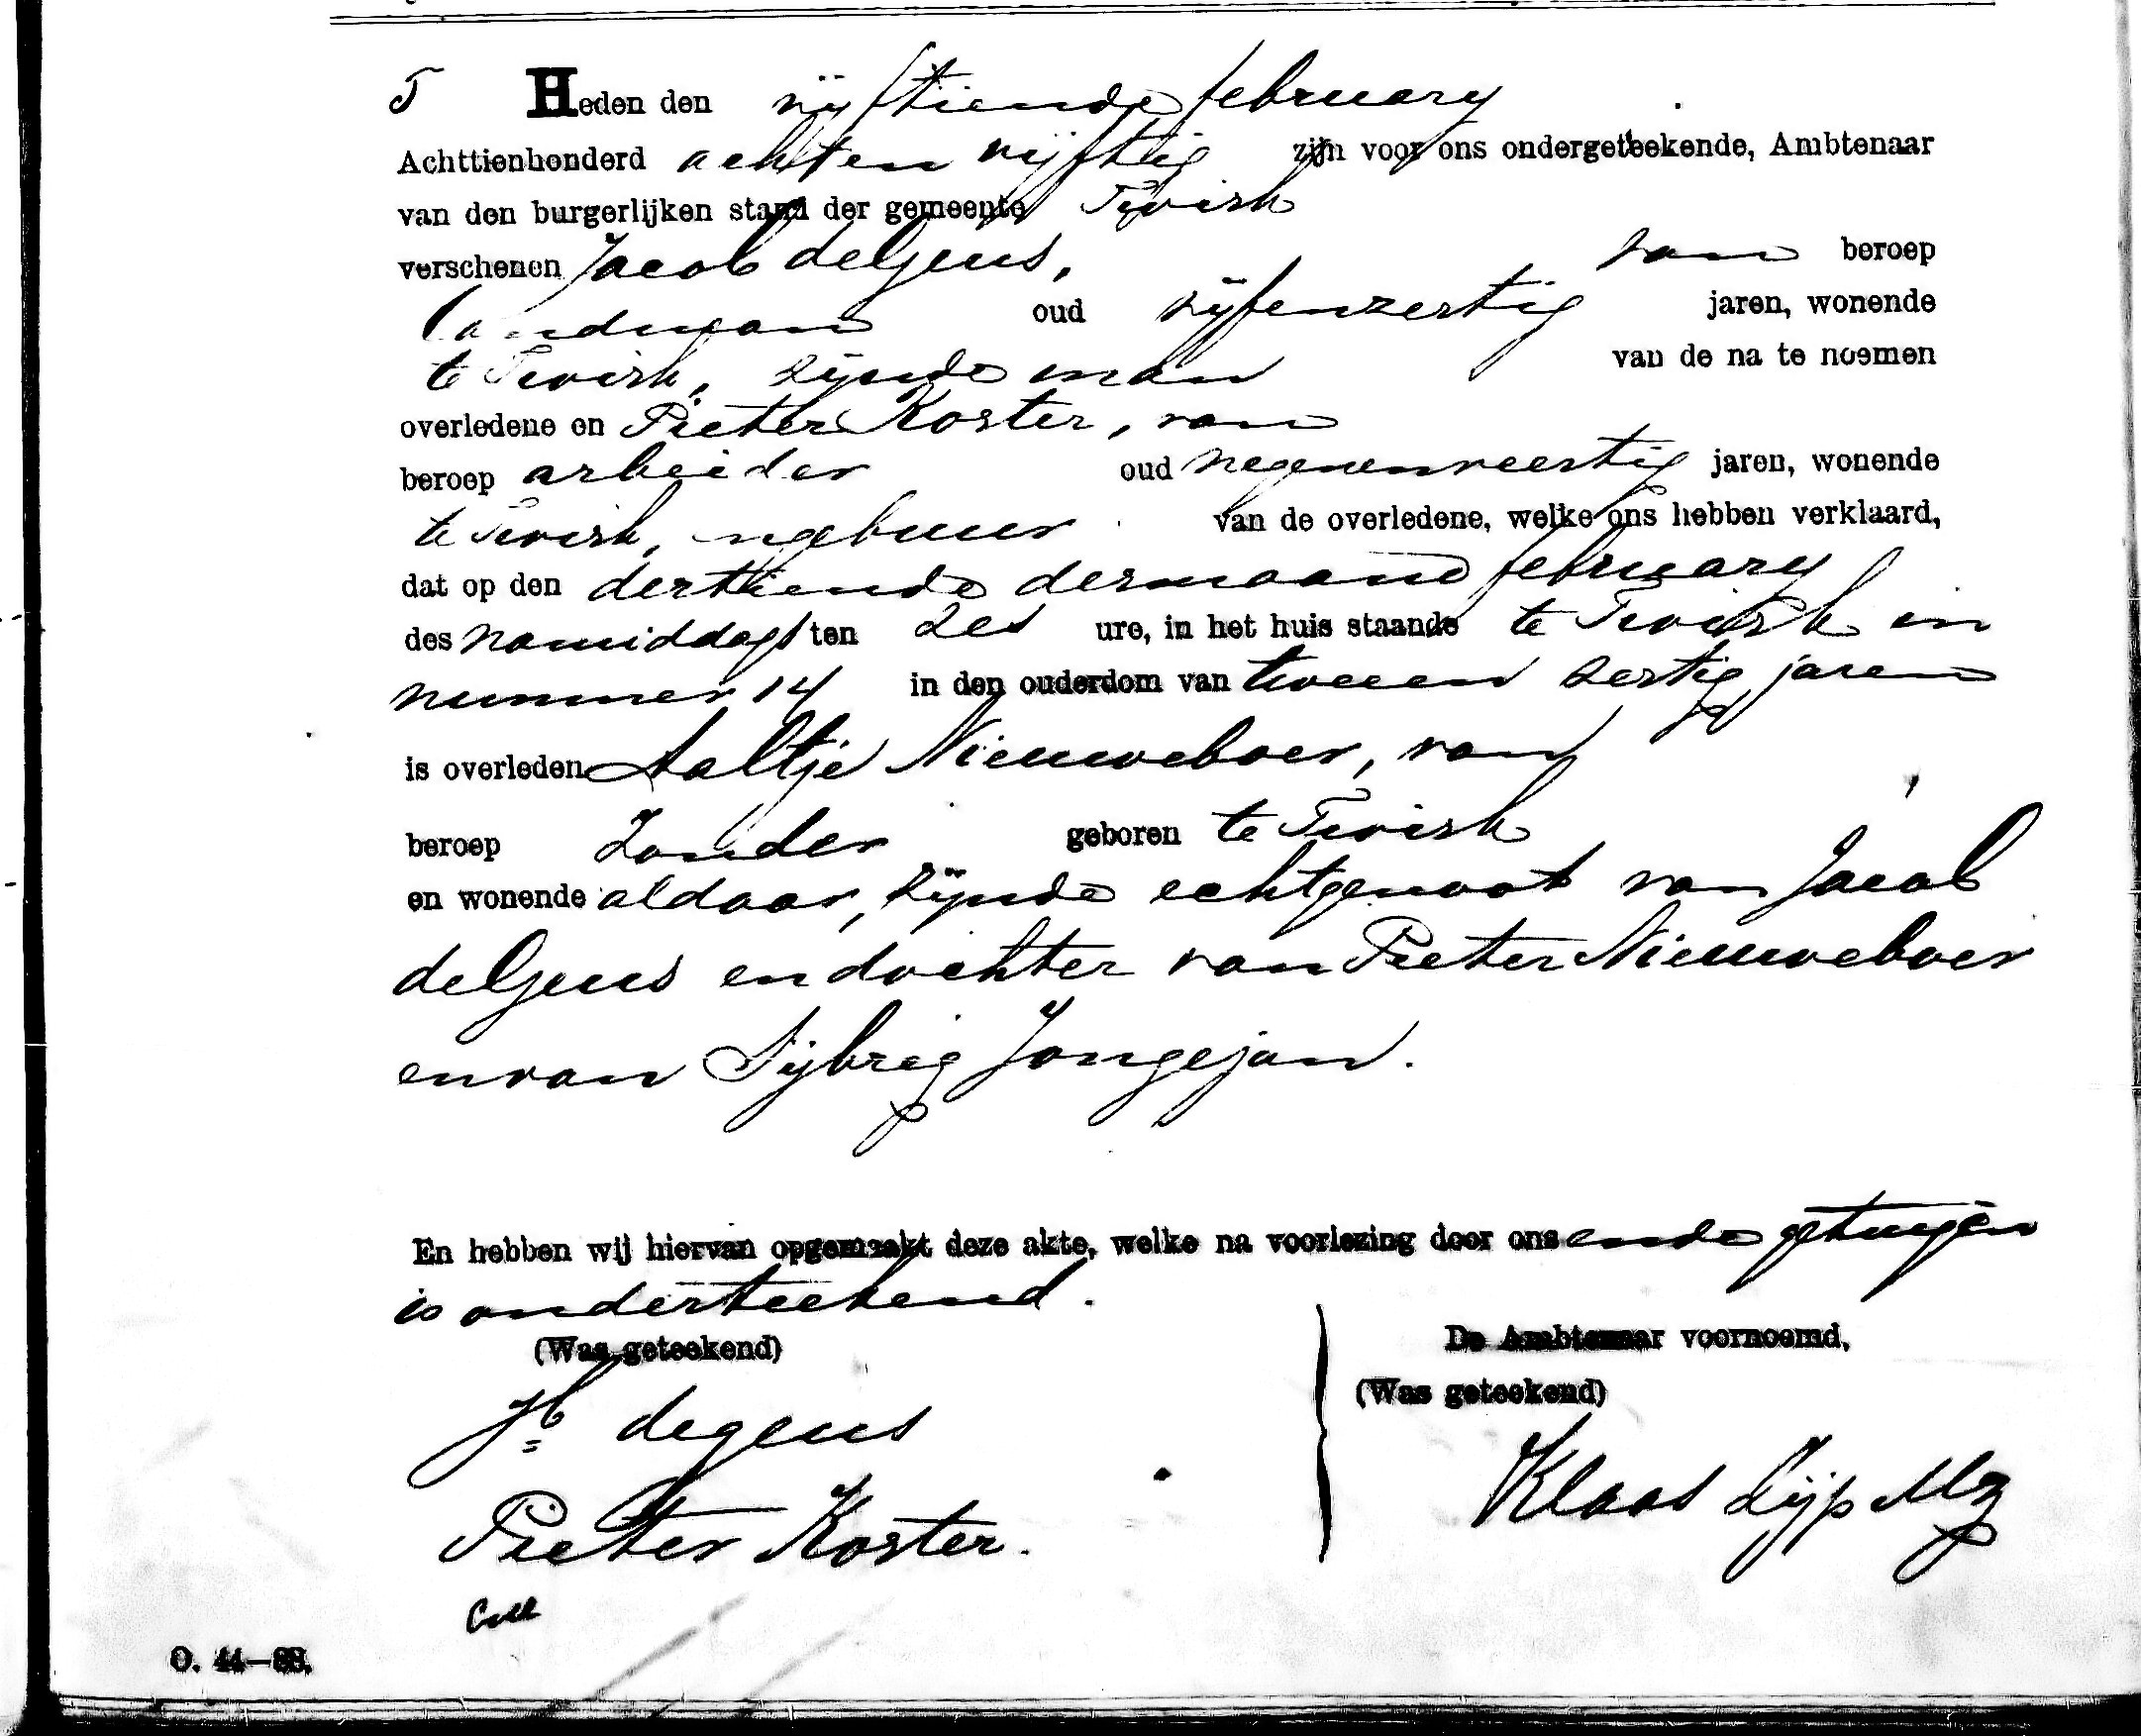 5 Heden den vijftiende february
Achttienhonderd achten vijftig zijn voor ons ondergeteekende, Ambtenaar
van den burgerlijken stand der gemeente Twisk
verschenen Jacob deGeus, van beroep
landman oud vijfenzestig jaren, wonende
te Twisk, zijnde man van de na te noemen
overledene en Pieter Koster, van
beroep arbeider oud negenenveertig jaren, wonende
te Twisk, nabuur van de overledene, welke ons hebben verklaard,
dat op den dertiende dermaand february
des namiddags ten zes ure, in het huis staande te Twisk in
nummer 14 in den ouderdom van tweeen zestig jaren
is overleden Aaltje Nieuweboer, van
beroep Zonder geboren te Twisk
en wonende aldaar, zijnde echtgenoot van Jacob
deGeus en dochter van Pieter Nieuweboer
en van Sijbreg Jongejan.
En hebben wij hiervan opgemaakt deze akte, welke na voorlezing door ons ende getuigen
is onderteekend.
(Was geteekend) De Ambtenaar voornoemd,
(Was geteekend)
Jb degeus
Pieter Koster. Klaas Zijp Mz
Coll
O. 44—88.